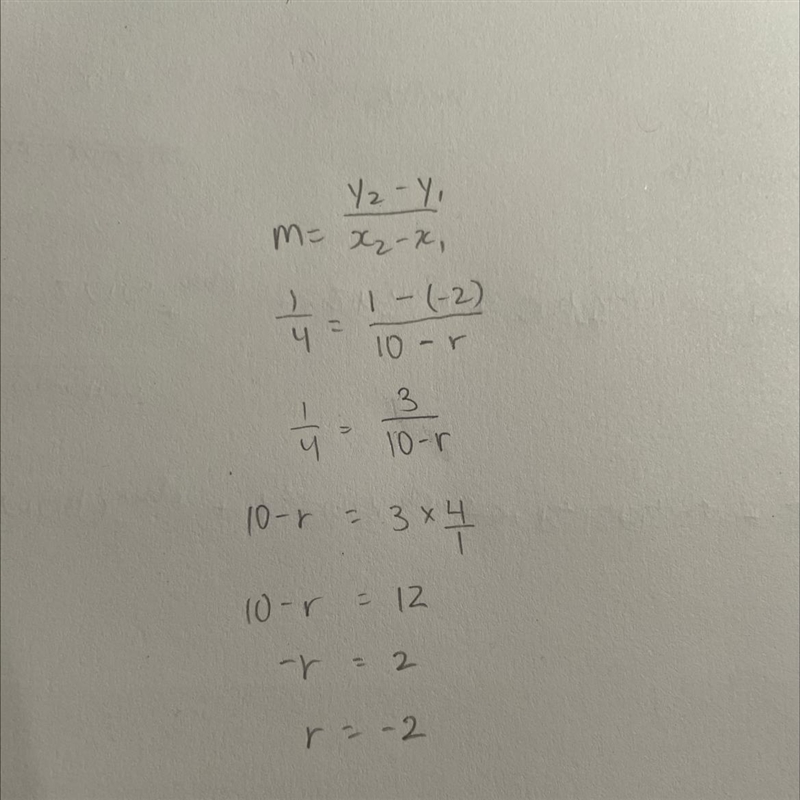 m = (y₂ - y₁)/(x₂ - x₁)
1/4 = (1 - (-2))/(10 - r)
1/4 = 3/(10 - r)
10 - r = 3 × 4/1
10 - r = 12
-r = 2
r = -2